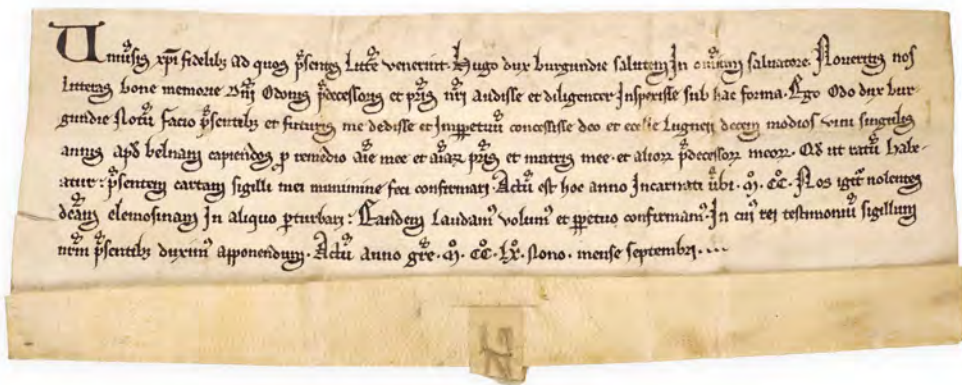 Univ̾sis xp̃i fidelibꝫ ad quos p̾sentes litt̾e venerint. Hugo dux burgundie salutem In omnium salvatore. Noveritis nos
litteras bone memorie dñi Odonis p̾decessoris et pr̾is nr̾i audisse et diligenter Inspexisse sub hac forma. Ego Odo dux bur-
gundie Notū facio p̾sentibꝫ et futuris me dedisse et Imꝑpetuū concessisse deo et eccl̾ie Lugneii decem modios vini singulis
annis apd̾ belnam capiendos ꝓ remedio aīe mee et aīaꝝ pr̾is et matris mee. et alioꝝ p̾decessoꝝ meoꝝ. Qd̾ ut ratū habe-
atur: p̾sentem cartam sigilli mei munimine feci confirmari. Actū est hoc anno Incarnati v̾bi. M̊. CC̊. Nos igit̾ nolentes
dc̄am elemosinam In aliquo ꝑturbari: Eandem laudamꝰ volumꝰ et ꝑpetuo confirmamꝰ. In cuiꝰ rei testimoniū sigillum
nr̄m p̾sentibꝫ duximꝰ apponendum. Actū anno gr̾e. M̊. CC̊. Lx̊. Nono. mense septembri. ...